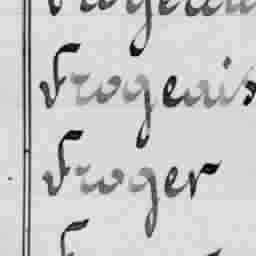 Frogeais
Froger